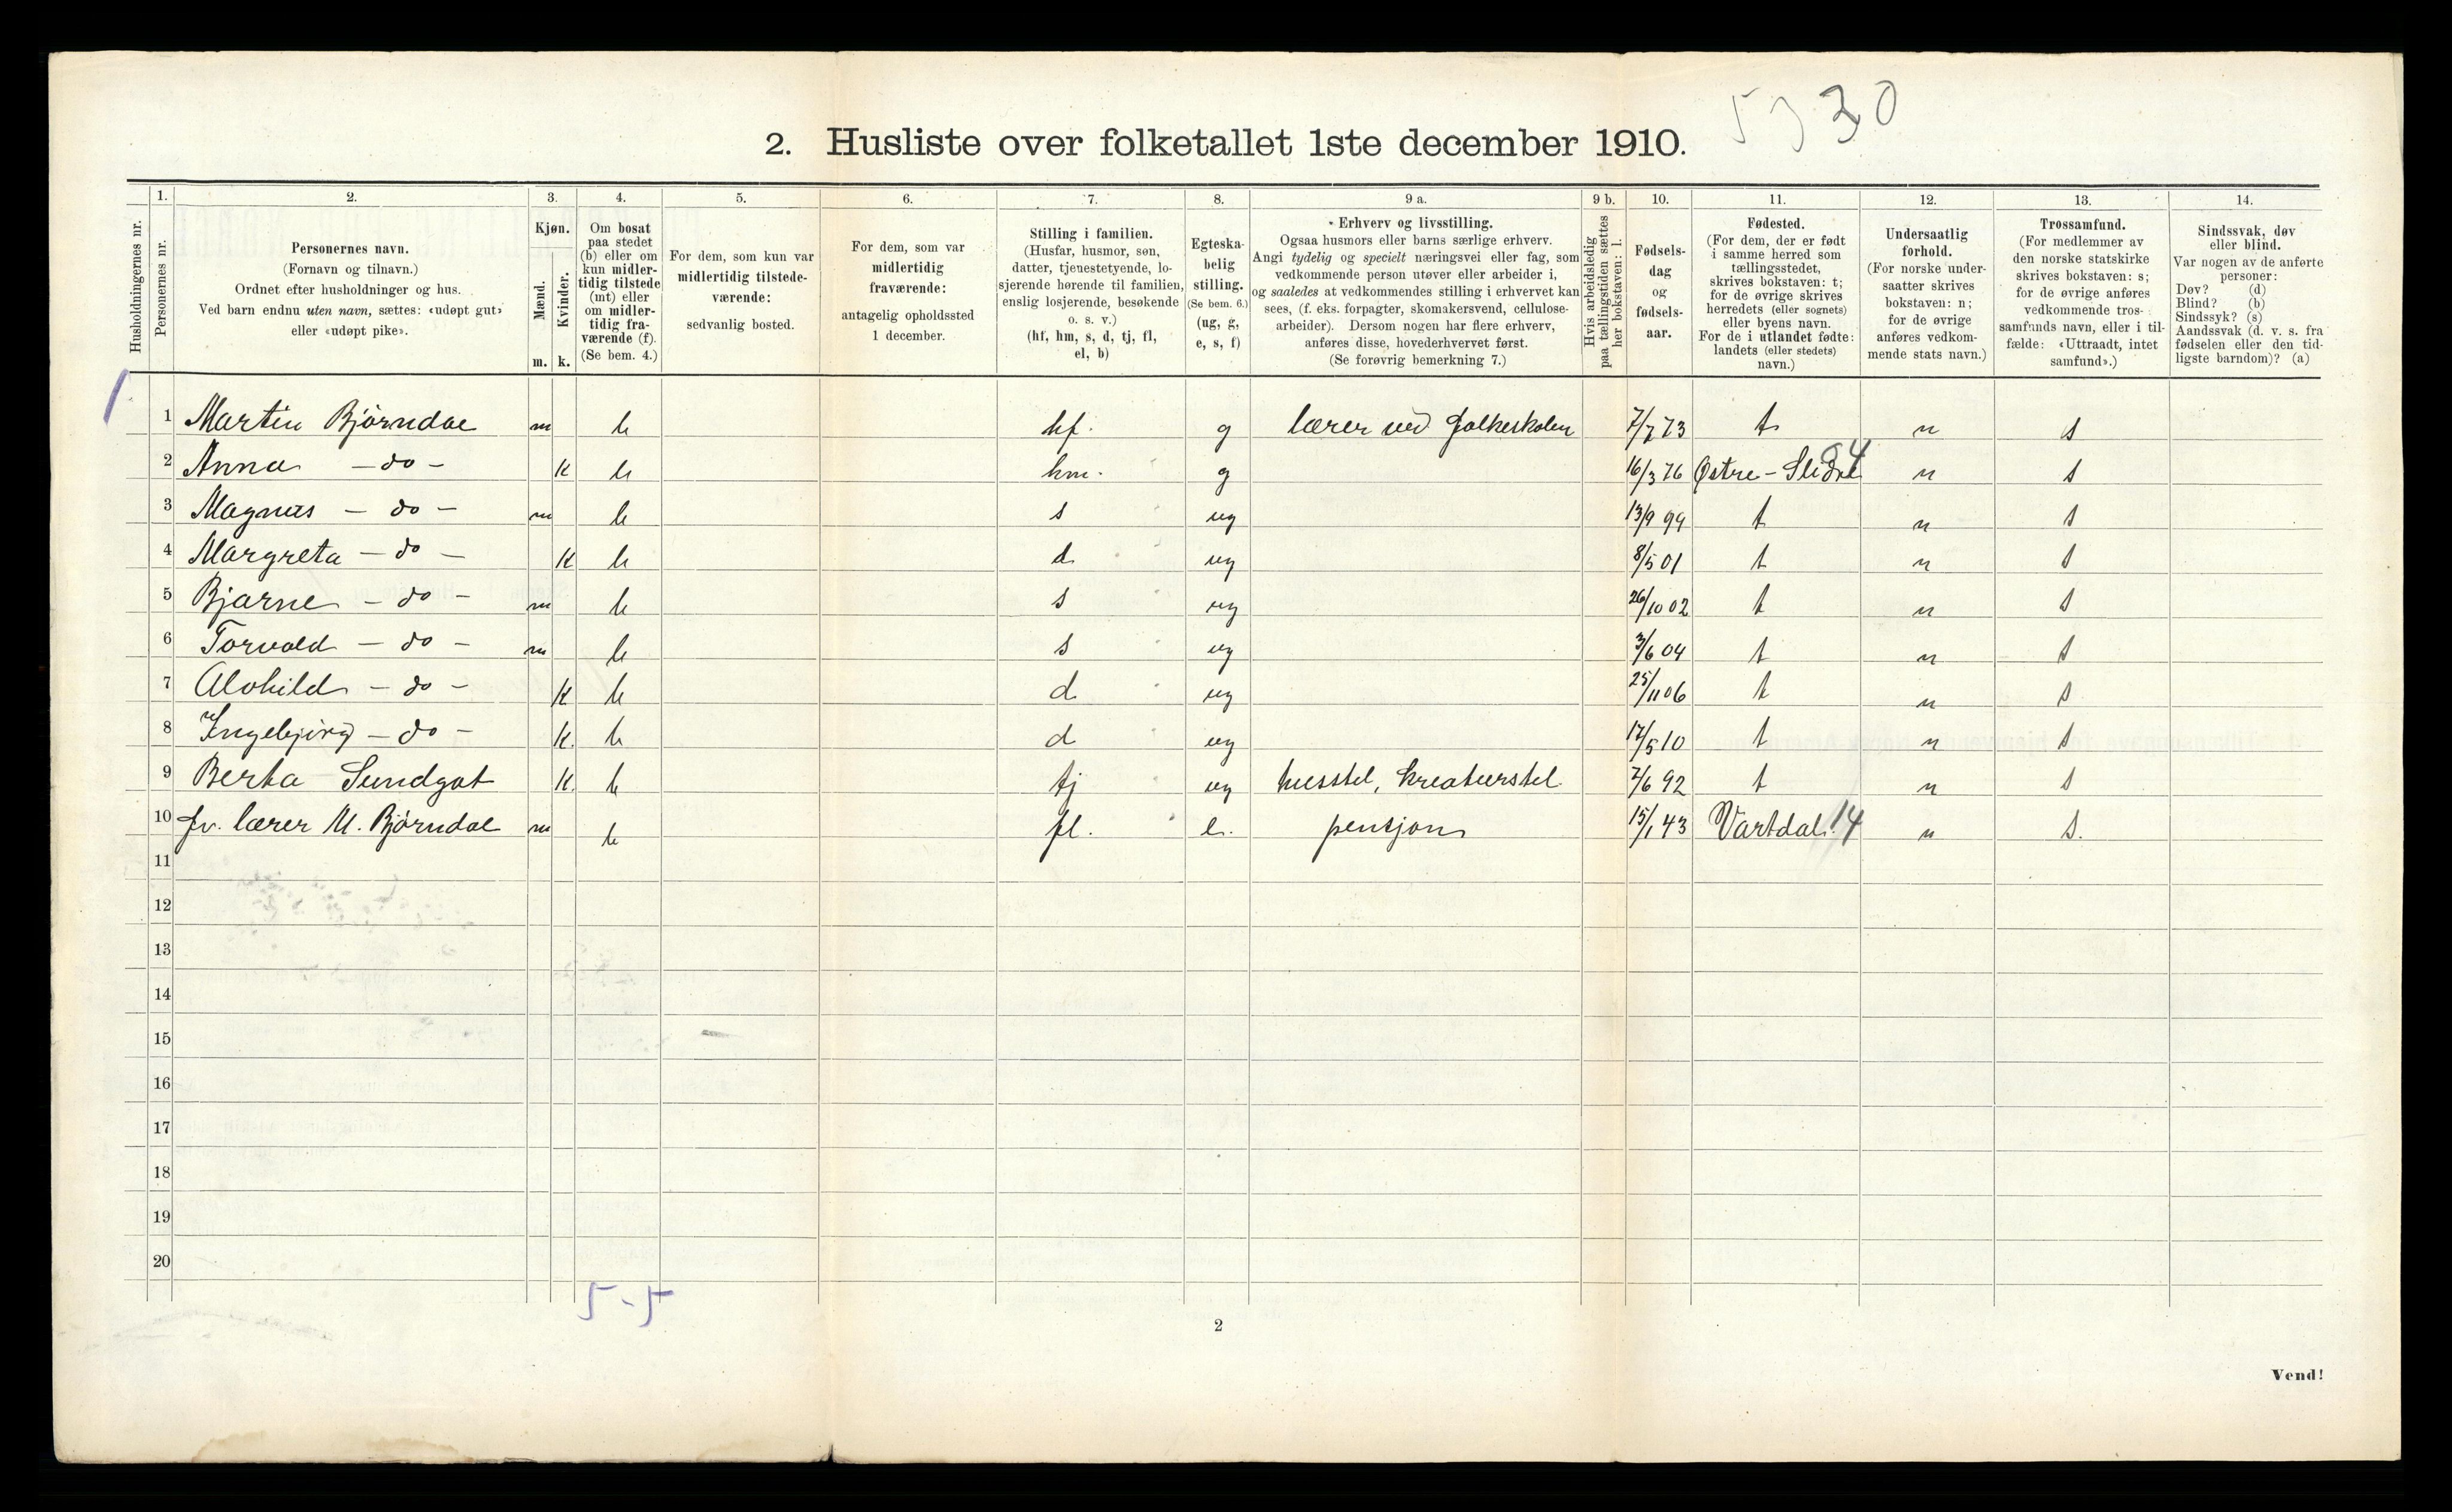 5330
2. Husliste over folketallet 1ste december 1910.
Husholdningernes nr.
1. Personernes nr.
2. Personernes navn. (Fornavn og tilnavn.) Ordnet efter husholdninger og hus. Ved barn endnu uten navn, sættes: «udøpt gut» eller «udøpt pike».
3. Kjøn. Mænd. m. Kvinder. k.
4. Om bosat paa stedet (b) eller om kun midlertidig tilstede (mt) eller om midlertidig fraværende (f). (Se bem. 4.)
5. For dem, som kun var midlertidig tilstedeværende: sedvanlig bosted.
6. For dem, som var midlertidig fraværende: antagelig opholdssted 1 december.
7. Stilling i familien. (Husfar, husmor, søn, datter, tjenestetyende, losjerende hørende til familien, enslig losjerende, besøkende o. s. v.) (hf, hm, s, d, tj, fl, el, b)
8. Egteskabelig stilling. (Se bem. 6.) (ug, g, e, s, f)
9 a. Erhverv og livsstilling. Ogsaa husmors eller barns særlige erhverv. Angi tydelig og specielt næringsvei eller fag, som vedkommende person utøver eller arbeider i, og saaledes at vedkommendes stilling i erhvervet kan sees, (f. eks. forpagter, skomakersvend, cellulosearbeider). Dersom nogen har flere erhverv, anføres disse, hovederhvervet først. (Se forøvrig bemerkning 7.)
9 b. Hvis arbeidsledig paa tællingstiden sættes her bokstaven: l.
10. Fødselsdag og fødselsaar.
11. Fødested. (For dem, der er født i samme herred som tællingsstedet, skrives bokstaven: t; for de øvrige skrives herredets (eller sognets) eller byens navn. For de i utlandet fødte: landets (eller stedets) navn.)
12. Undersaatlig forhold. (For norske undersaatter skrives bokstaven: n; for de øvrige anføres vedkommende stats navn.)
13. Trossamfund. (For medlemmer av den norske statskirke skrives bokstaven: s; for de øvrige anføres vedkommende trossamfunds navn, eller i tilfælde: «Uttraadt, intet samfund».)
14. Sindssvak, døv eller blind. Var nogen av de anførte personer: Døv? (d) Blind? (b) Sindssyk? (s) Aandssvak (d. v. s. fra fødselen eller den tidligste barndom)? (a)
1 1 Martin Bjørndal m b hf. g lærer ved folkeskolen 7/7 73 t n s
2 Anna - do - k b hm. g 16/3 76 Østre-Slidre 54 n s
3 Magnus - do - m b s ug 13/9 99 t n s
4 Margreta - do - k b d ug 8/5 01 t n s
5 Bjarne - do - m b s ug 26/10 02 t n s
6 Torvald - do - m b s ug 3/6 04 t n s
7 Alvhild - do - k b d ug 25/11 06 t n s
8 Ingebjørg - do - k. b d ug 17/5 10 t n s
9 Berta Sundgot k. b tj ug husstel, kreaturstel 7/6 92 t n s
10 fv. lærer M. Bjørndal m b fl. e. pensjon 15/1 43 Vartdal. 14 n s.
11
12
13
14
15
16
17
18
19
20
5-5
2
Vend!